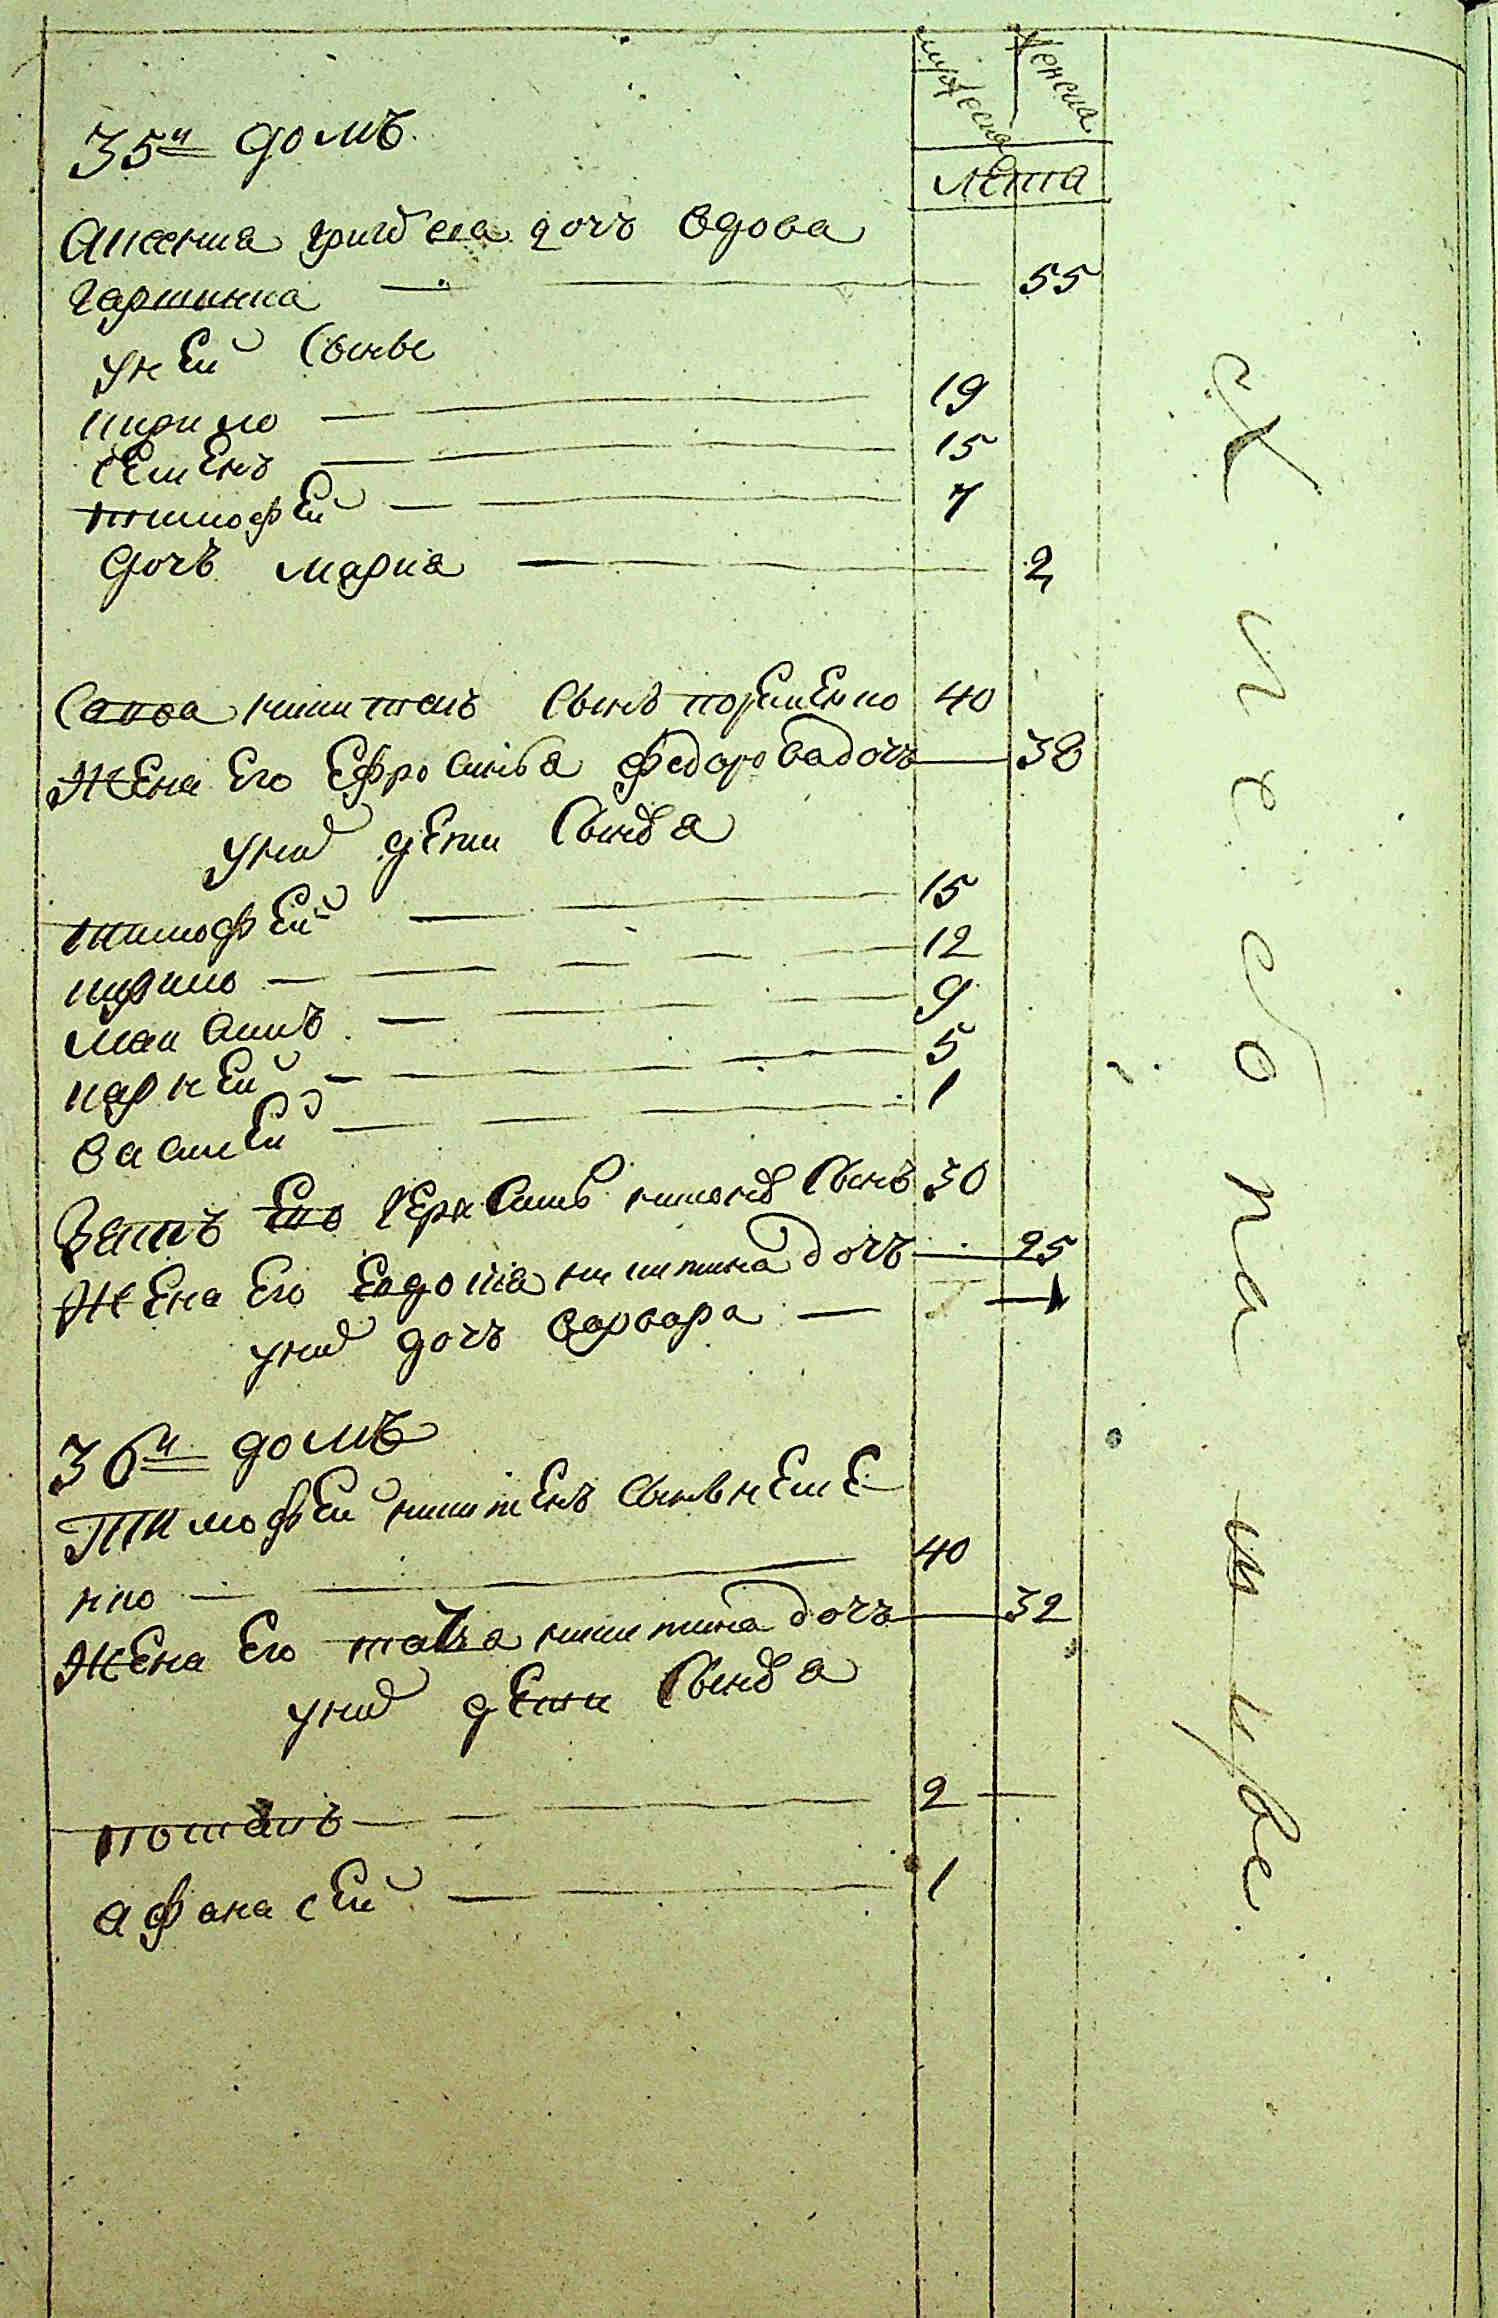 мужеска
женска
лета
35й домъ
Аксения григорева дочъ вдова
гаркшинка 55
у ней Сынве
кирило 19
Семенъ 15
тимофей 7
дочъ мария 2
Савва никитенъ Сынъ 40
Жена Его Ефросиня федорова дочъ 38
у них дети Сыновя
тимофей 15
кирило 12
максимъ 9
карней 5
василей 1
Зять Его Герасимъ Сынъ 30
Жена Его Евдокия никитина дочъ 25
у них дочъ варвара 1
36й домъ
Тимофей никитенъ Сынъ неше
нко 40
Жена Его никитина дочъ 32
у них дети Сыновя
потапъ 2
афанасей 1